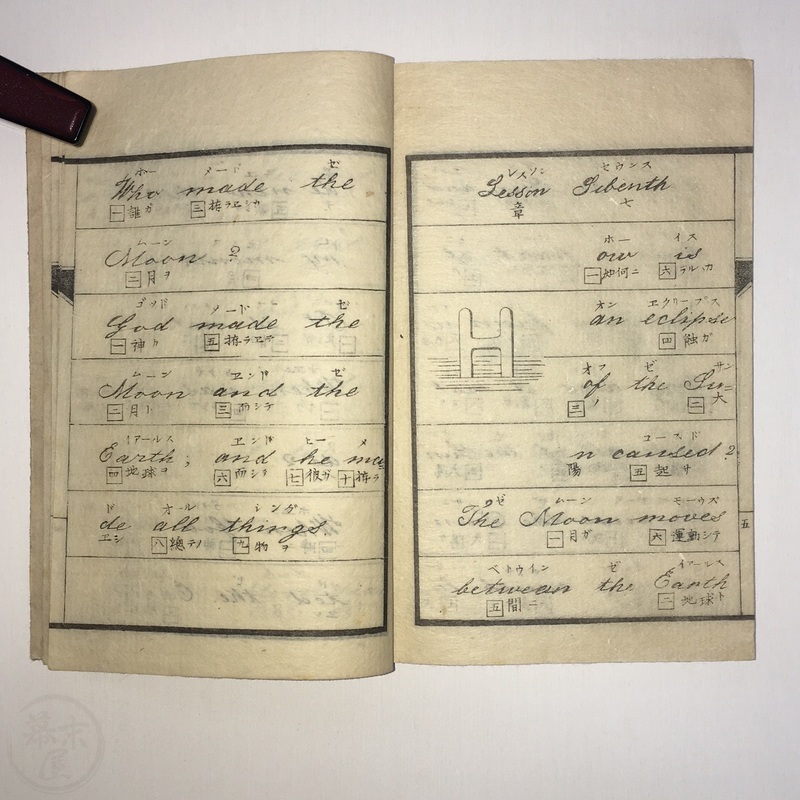 ホー メード ゼ
Who made the
一 誰ガ 三 拵ラヱシカ
ムーン
Moon ?
二 月ヲ
ゴッド メード ゼ
God made the
一 神ガ 五 拵ラヱテ
ムーン ヱンド ゼ
Moon and the
二 月ト 三 而シテ
イアールス ヱンド ヒー メ
Earth; and he ma=
四 地球ヲ 六 而シテ 七 彼ガ 十 拵ラ
ド オール シング
de all things.
ヱシ 八 總テノ 九 物ヲ
レスソン セウンス
Lesson Sebenth
章 七
ホー イス
H ow is
一 如何ニ 六 テルカ
オン ヱクリープス
an eclipse
四 触ガ
オフ ゼ サン
of the Su=
三 ノ 二 大
コースド
n caused ?
陽 五 起サ
ゼ ムーン モーウス
The Moon moves
一 月ガ 六 運動シテ
五
ベトウイン ゼ イアールス
between the Earth
五 間ニ 二 地球ト
幕末屋